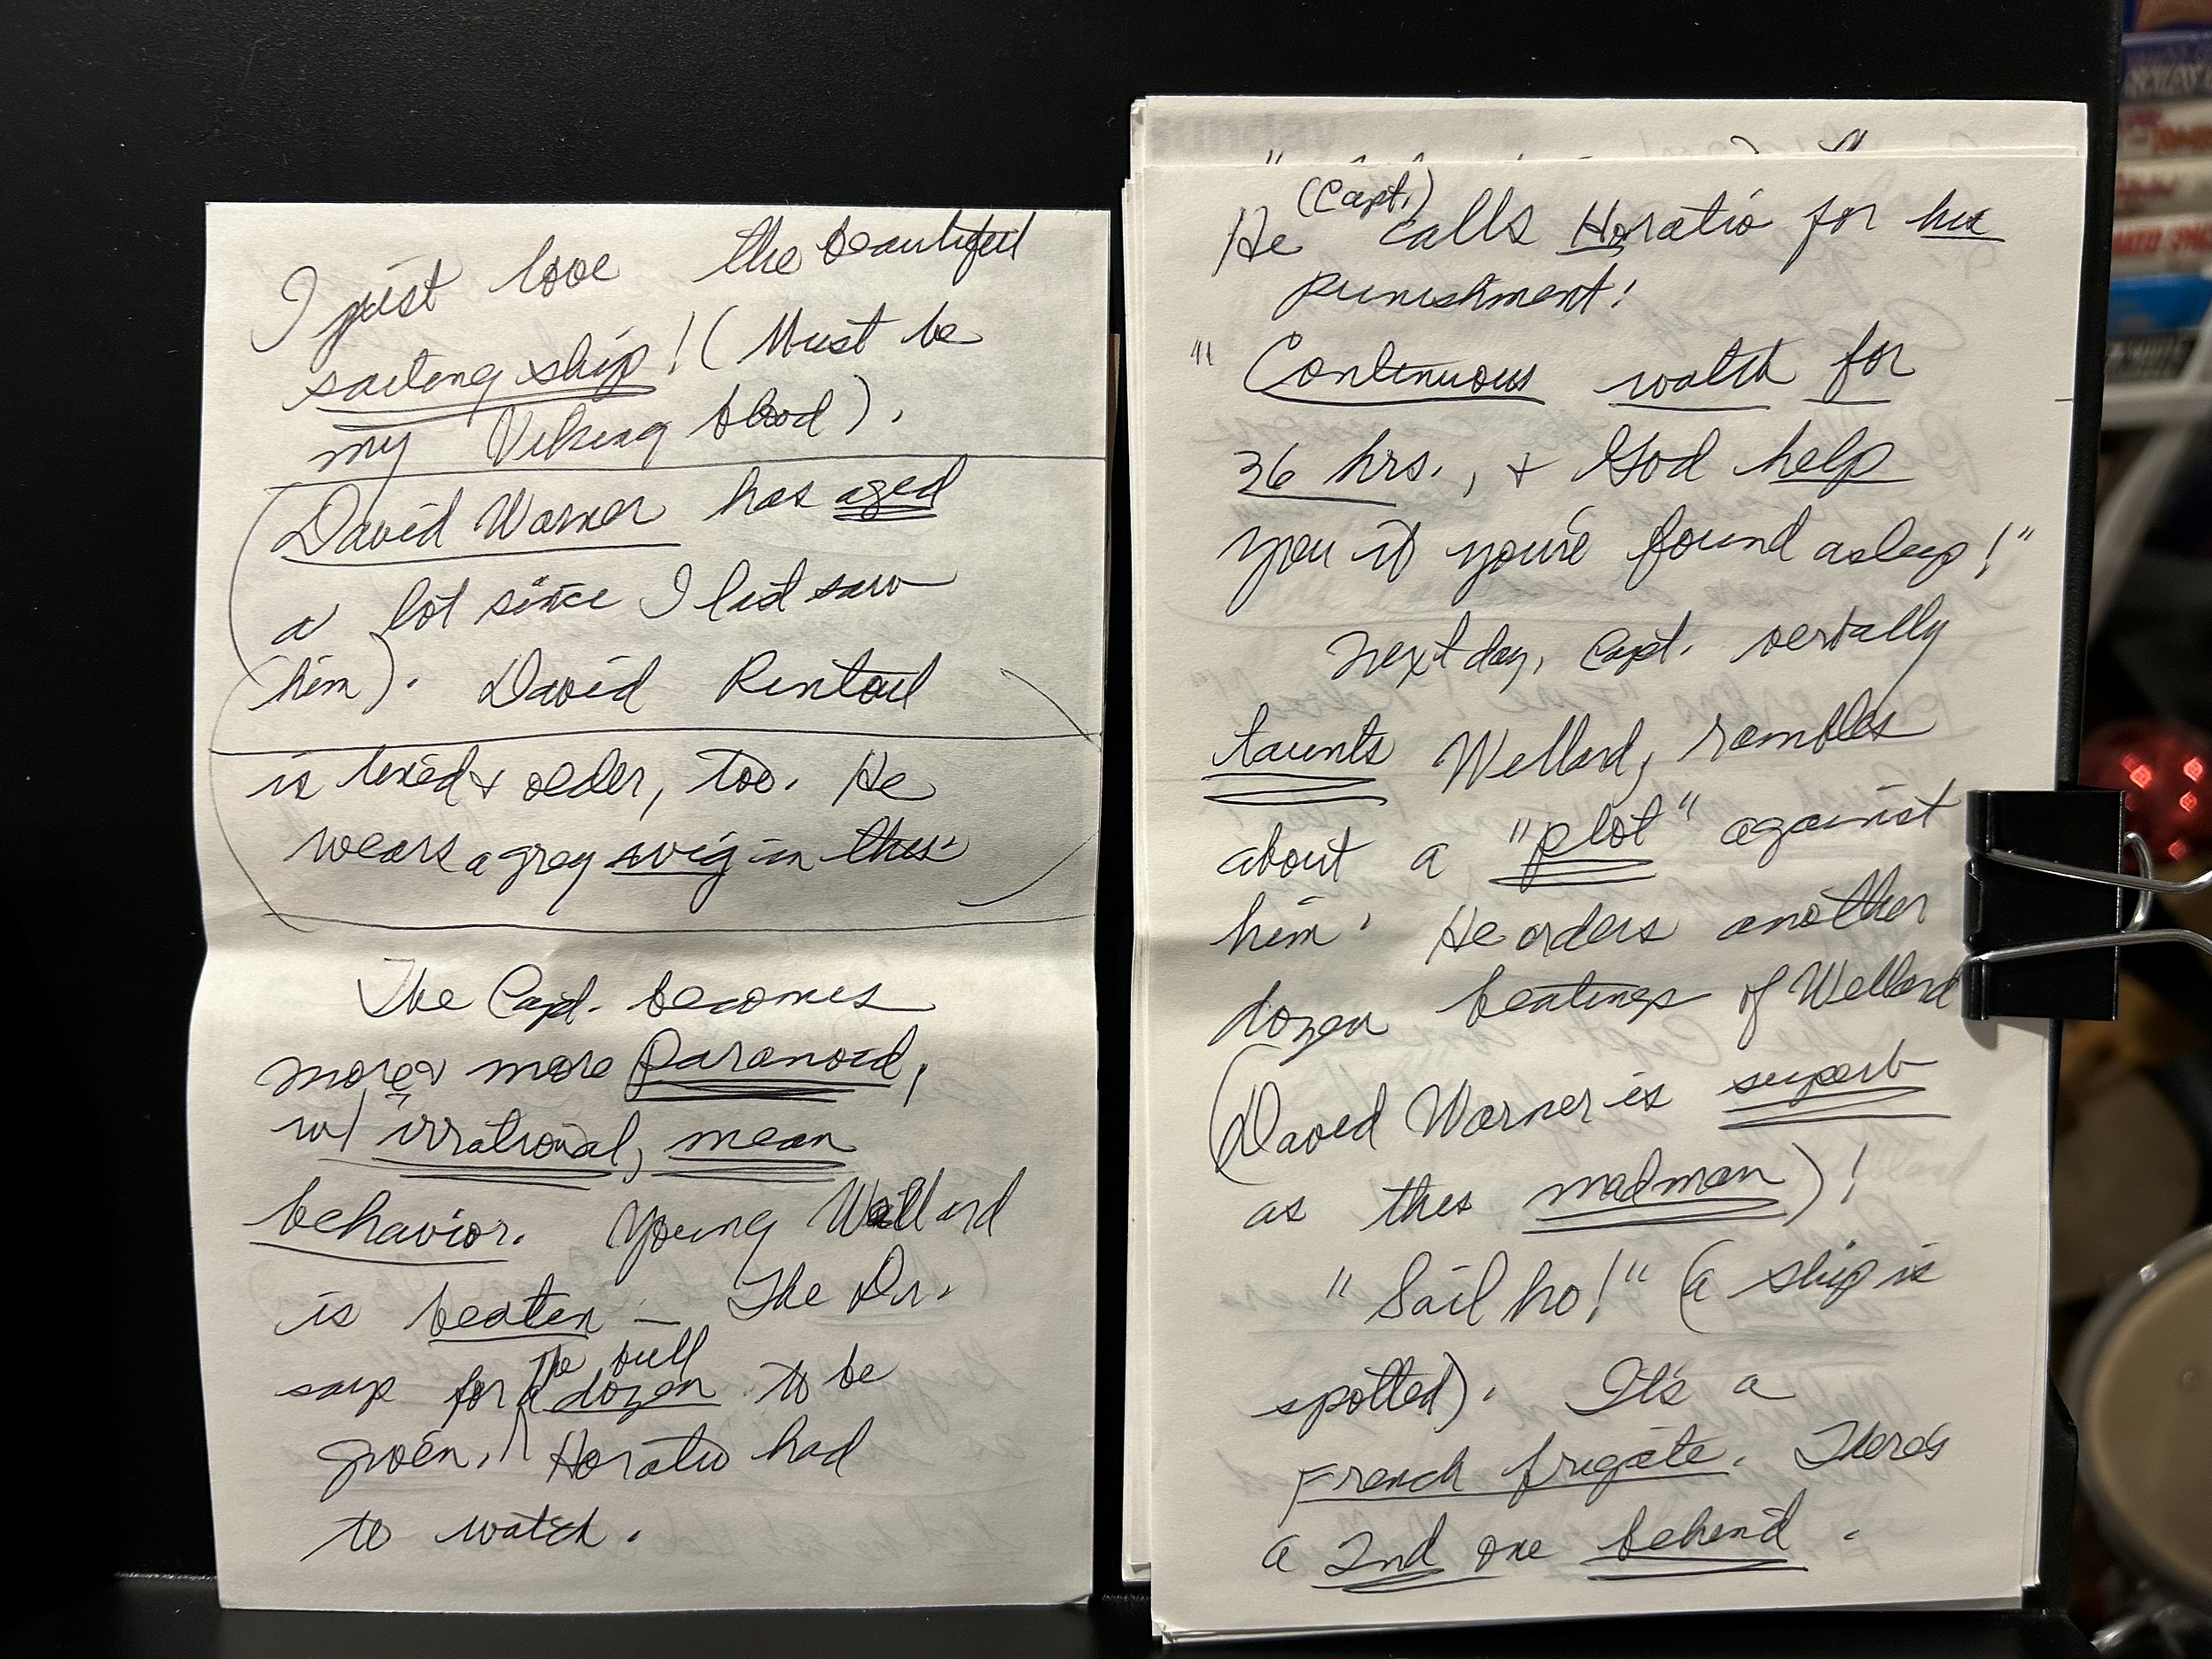 I just love the beautiful
sailing ship! (Must be
my Viking blood).
(David Warner has aged
a lot since I last saw
him). David Rintoul
is lined & older, too. He
wears a grey wig in this
The Capt. becomes
more & more paranoid,
w/ irrational, mean
behavior. Young Wellard
is beaten — The Dr.
the full
says for a dozen to be
given. Horatio had
to watch.
(Capt.)
He calls Horatio for his
punishment!
"Continuous watch for
36 hrs., + God help
you if you're found asleep!"
Next day, Capt. verbally
taunts Wellard, rambles
about a "plot" against
him. He orders another
dozen beatings of Wellard
(David Warner is superb
as this madman)!
"Sail ho!" (a ship is
spotted). It's a
French frigate. There's
a 2nd one behind.